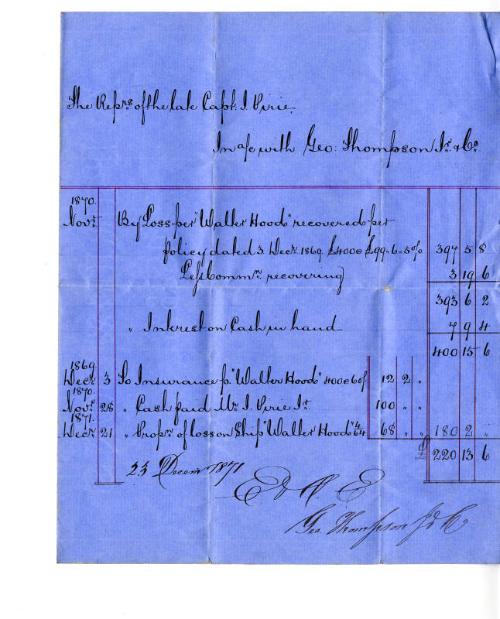 The Reprs. of the late Capt. J. Pirie.
In a/c with Geo: Thompson Jr. & Co.
1870
Novr. By Loss per "Walter Hood" recovered per
policy dated 3 Decr. 1869 £400 @ £99.6.5% 397 5 8
Less Commn. recovering 3 19 6
393 6 2
" Interest on Cash in hand 7 9 4
400 15 6
1869
Decr. 3 To Insurance p "Walter Hood" 400 @ 12 2 "
1870
Novr. 28 " Cash paid Mr. J. Pirie Jr. 100 " "
1871
Decr. 21 " Propn. of loss on Ship "Walter Hood" 68 " " 180 2 "
£ 220 13 6
23 Decemr 1871
E & O E
Geo. Thompson Jr & Co